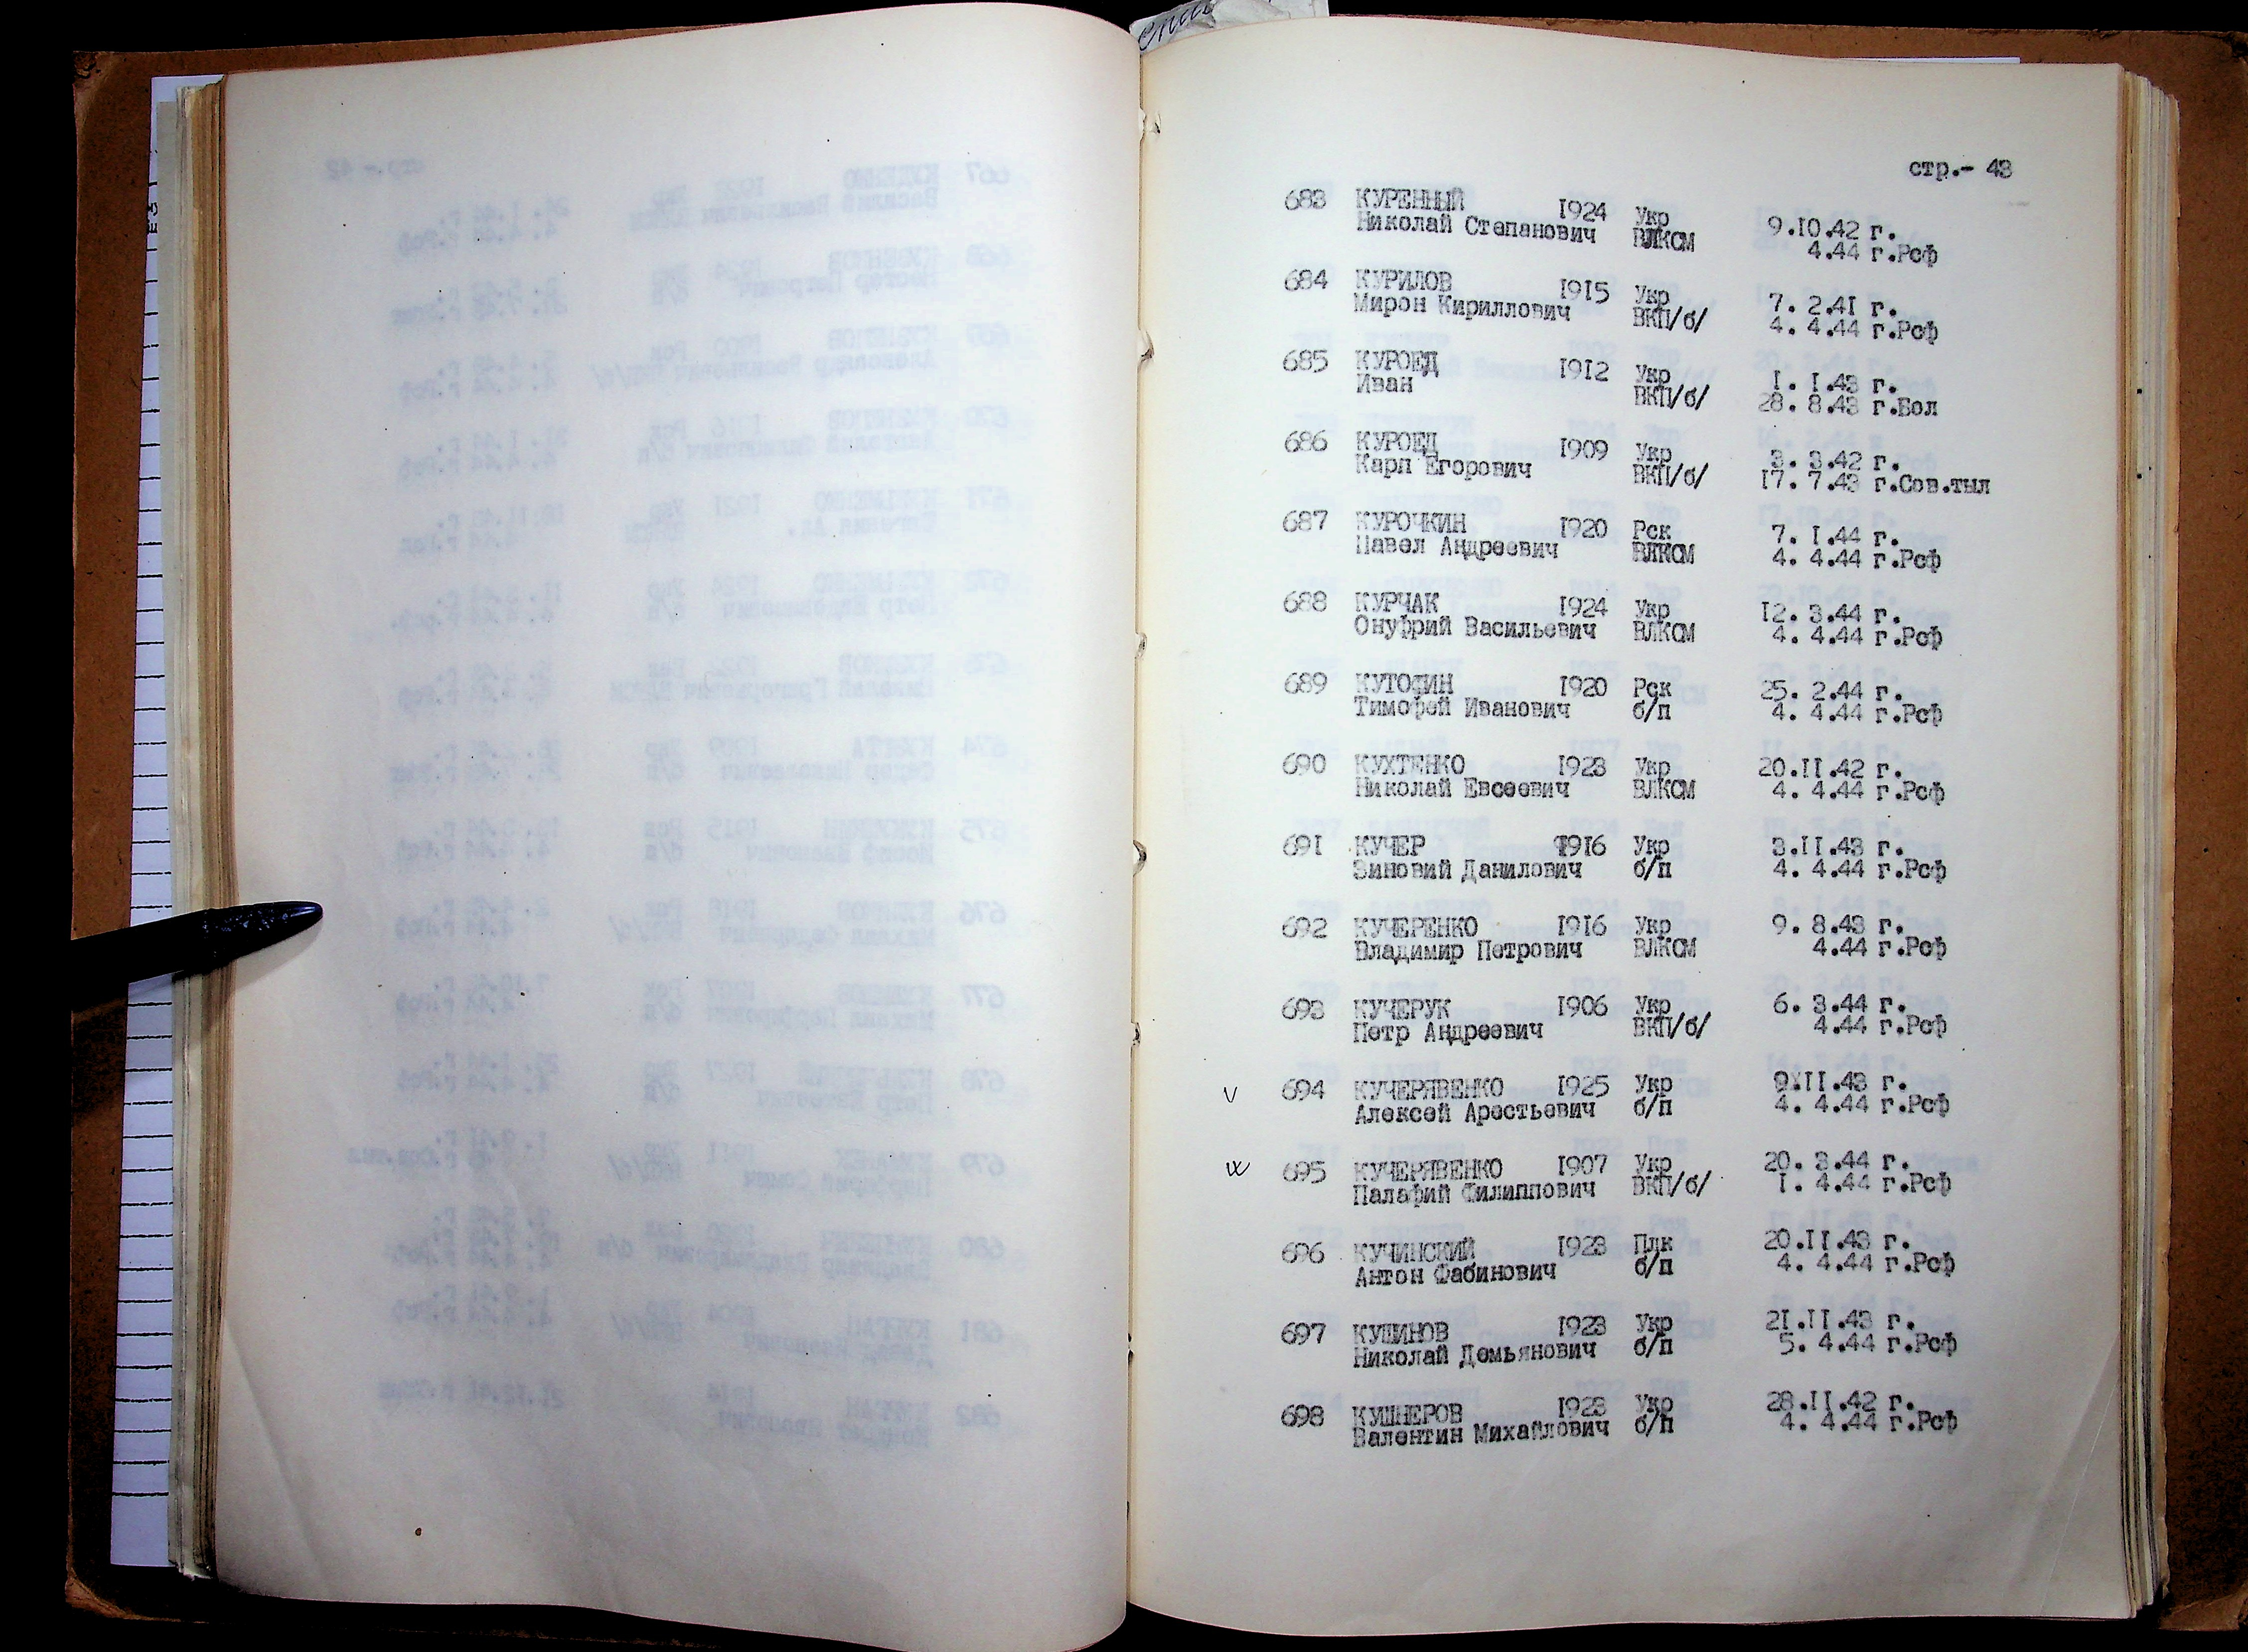 стр.- 43
683 КУРЕННЫЙ 1924 Укр 9.10.42 г.
Николай Степанович ВЛКСМ 4.44 г.Рсф
684 КУРИЛОВ 1915 Укр 7. 2.41 г.
Мирон Кириллович ВКП/б/ 4. 4.44 г.Рсф
685 КУРОЕД 1912 Укр 1. 1.43 г.
Иван ВКП/б/ 28. 8.43 г.Бол
686 КУРОЕД 1909 Укр 3. 3.42 г.
Карп Егорович ВКП/б/ 17. 7.43 г.Сов.тыл
687 КУРОЧКИН 1920 Рск 7. 1.44 г.
Павел Андреевич ВЛКСМ 4. 4.44 г.Рсф
688 КУРЧАК 1924 Укр 12. 3.44 г.
Онуфрий Васильевич ВЛКСМ 4. 4.44 г.Рсф
689 КУТОФИН 1920 Рск 25. 2.44 г.
Тимофей Иванович б/п 4. 4.44 г.Рсф
690 КУХТЕНКО 1923 Укр 20.11.42 г.
Николай Евсеевич ВЛКСМ 4. 4.44 г.Рсф
691 КУЧЕР 1916 Укр 3.11.43 г.
Зиновий Данилович б/п 4. 4.44 г.Рсф
692 КУЧЕРЕНКО 1916 Укр 9. 8.43 г.
Владимир Петрович ВЛКСМ 4.44 г.Рсф
693 КУЧЕРУК 1906 Укр 6. 3.44 г.
Петр Андреевич ВКП/б/ 4.44 г.Рсф
694 КУЧЕРЯВЕНКО 1925 Укр 9.11.43 г.
Алексей Арестьевич б/п 4. 4.44 г.Рсф
695 КУЧЕРЯВЕНКО 1907 Укр 20. 3.44 г.
Палафий Филиппович ВКП/б/ 1. 4.44 г.Рсф
696 КУЧИНСКИЙ 1923 Плк 20.11.43 г.
Антон Фабинович б/п 4. 4.44 г.Рсф
697 КУШИНОВ 1923 Укр 21.11.43 г.
Николай Демьянович б/п 5. 4.44 г.Рсф
698 КУШНЕРОВ 1923 Укр 28.11.42 г.
Валентин Михайлович б/п 4. 4.44 г.Рсф